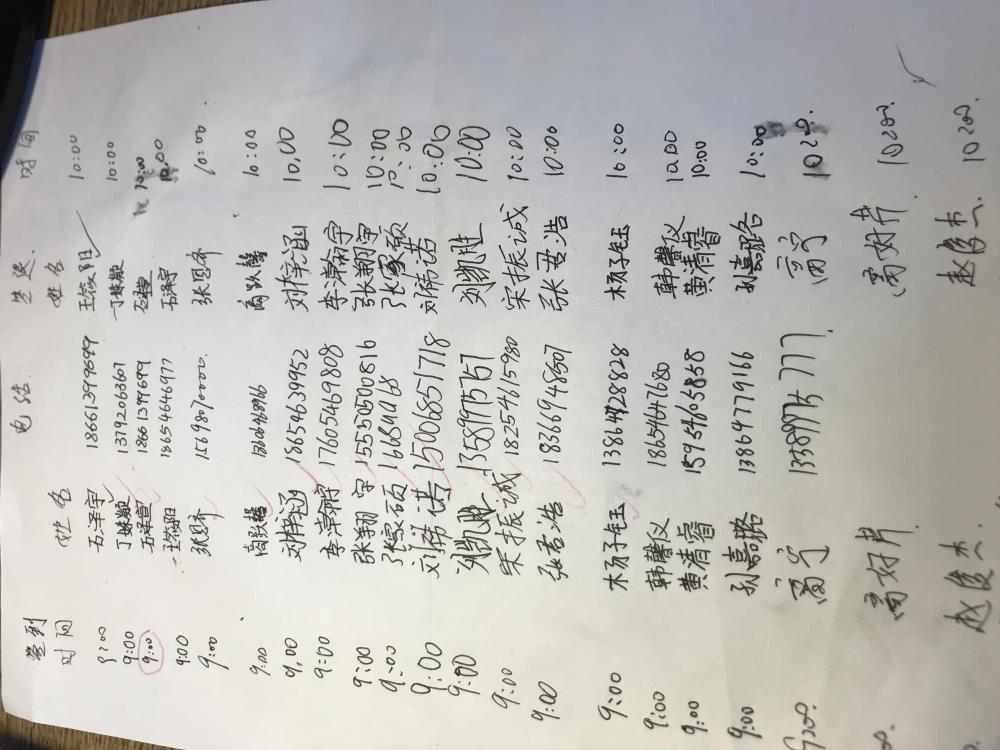 签到时间 姓名 电话 签退姓名 时间
9:00 石泽宇 18661399699 王筱阳 10:00
9:00 丁姝懿 13792663607 丁姝懿 10:00
9:00 石泽萱 18661399699 石泽萱 10:00
9:00 王筱阳 18654646977 石泽宇 10:00
9:00 张恩齐 15698070000 张恩齐 10:00
9:00 高跃馨 高跃馨 10:00
9.00 刘梓涵 18654639952 刘梓涵 10.00
9:00 李潆宇 17605469808 李潆宇 10:00
9:00 张翔宇 15550500816 张翔宇 10:00
9:00 张家硕 张家硕 10:00
9:00 刘祎诺 15006851718 刘祎诺 10:00
9:00 刘凯胜 13589975757 刘凯胜 10:00
9:00 宋振诚 18254615980 宋振诚 10:00
9:00 张君浩 18366948507 张君浩 10:00
9:00 杨子毛玉 13864728828 杨子毛玉 10:00
9:00 韩馨仪 18654647680 韩馨仪 10:00
9:00 黄清睿 15954605858 黄清睿 10:00
9:00 孙嘉璐 13864779166 孙嘉璐 10:00
9:00. 高宁 高宁 10:00.
高好芹 高好芹 10:00.
赵俊杰 赵俊杰 10:00.